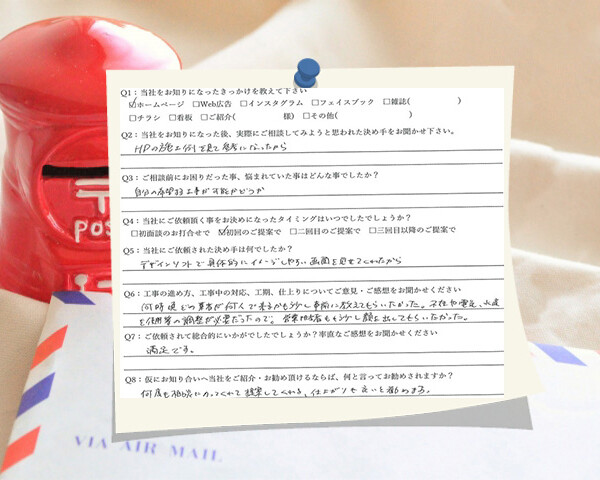 Q1：当社をお知りになったきっかけを教えて下さい
☑ホームページ　□Web広告　□インスタグラム　□フェイスブック　□雑誌(　　　　　)
□チラシ　□看板　□ご紹介(　　　　　様)　□その他(　　　　　　　)
Q2：当社をお知りになった後、実際にご相談してみようと思われた決め手をお聞かせ下さい。
HPの施工例を見て参考になったから
Q3：ご相談前にお困りだった事、悩まれていた事はどんな事でしたか？
自分の希望的工事が可能かどうか
Q4：当社にご依頼頂く事をお決めになったタイミングはいつでしたでしょうか？
□初面談のお打合せで　☑初回のご提案で　□二回目のご提案で　□三回目以降のご提案で
Q5：当社にご依頼された決め手は何でしたか？
デザインソフトで具体的にイメージしやすい画面を見せてくれたから
Q6：工事の進め方、工事中の対応、工期、仕上りについてご意見・ご感想をお聞かせください
何時頃どの業者が何人で来るかもう少し事前に教えてもらいたかった。子供や電気、水道
を使用等の調整が必要だったので。営業担当者ももう少し顔を出してもらいたかった。
Q7：ご依頼されて総合的にいかがでしたでしょうか？率直なご感想をお聞かせください
満足です。
Q8：仮にお知り合いへ当社をご紹介・お勧め頂けるならば、何と言ってお勧めされますか？
何度も相談にのってくれて提案してくれる、仕上がりも良いと勧める。
POS
VIA AIR MAIL